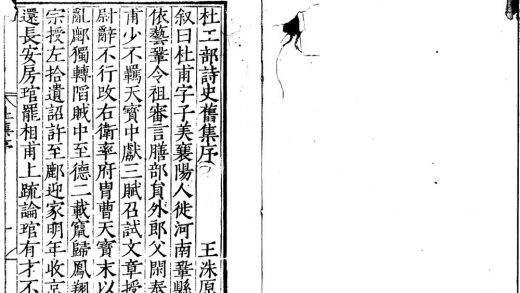 杜工部詩史舊集序
王洙原
叙曰杜甫字子美襄陽人徙河南鞏縣
依藝鞏令祖審言膳部員外郎父閑奉
甫少不羈天寶中獻三賦召試文章授
尉辭不行改右衛率府胄曹天寶末以
亂鄜獨轉陷賊中至德二載竄歸鳳翔
宗授左拾遺詔許至鄜迎家明年收京
還長安房琯罷相甫上疏論琯有才不